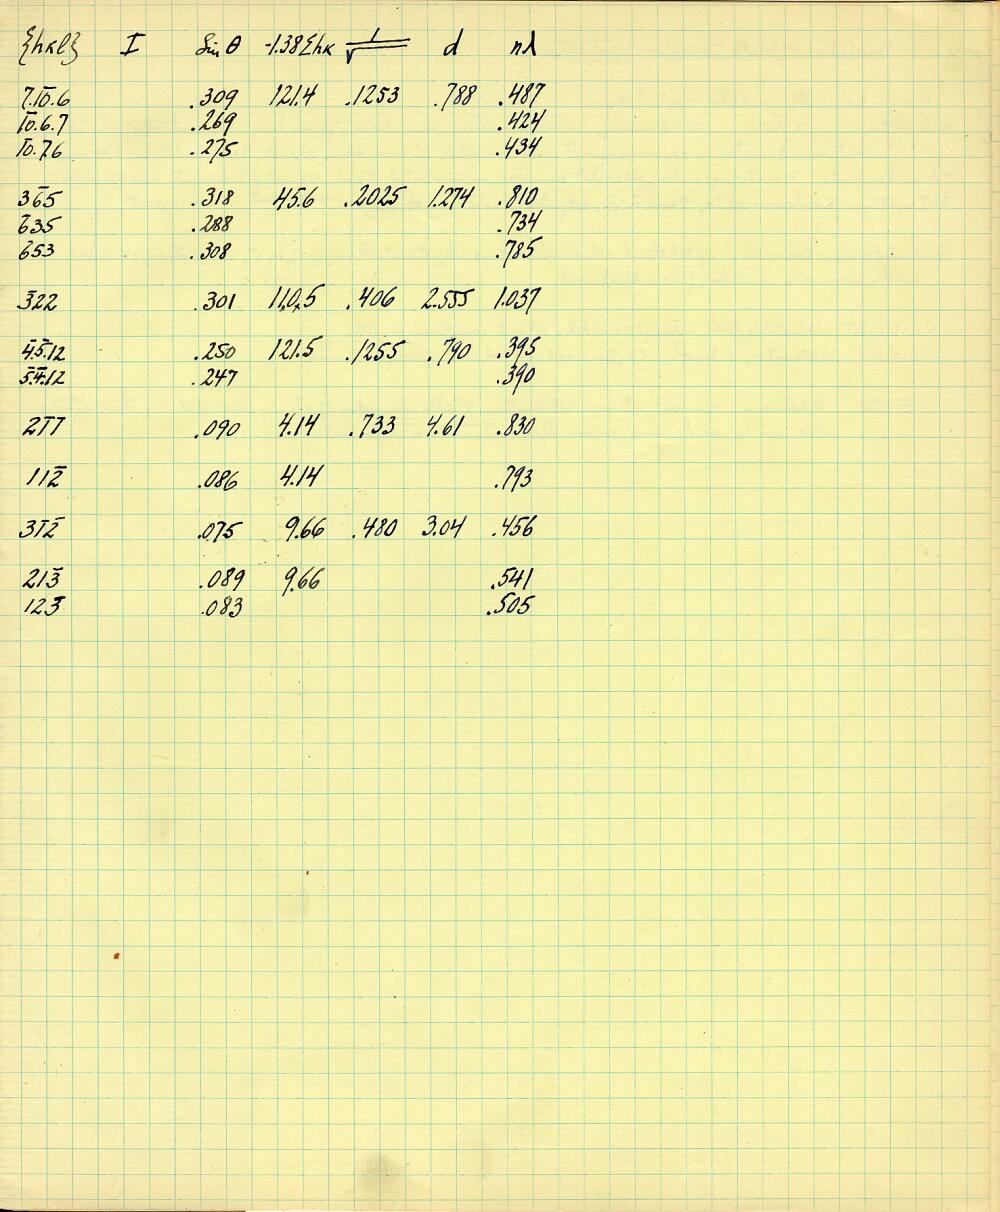 {hkl} I Sin θ -1.38Σhk 1/√ d nλ
7.1̄0̄.6 .309 121.4 .1253 .788 .487
1̄0̄.6.7 .269 .424
1̄0̄.7.6 .275 .434
36̄5 .318 45.6 .2025 1.274 .810
6̄35 .288 .734
6̄53 .308 .785
3̄22 .301 11.0.5 .406 2.555 1.037
4̄.5̄.12 .250 121.5 .1255 .790 .395
5̄.4̄.12 .247 .390
21̄1̄ .090 4.14 .733 4.61 .830
112̄ .086 4.14 .793
31̄2̄ .075 9.66 .480 3.04 .456
213̄ .089 9.66 .541
123̄ .083 .505